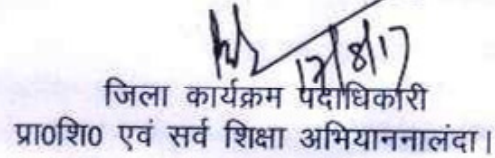 17/8/17
जिला कार्यक्रम पदाधिकारी
प्रा0शि0 एवं सर्व शिक्षा अभियाननालंदा।